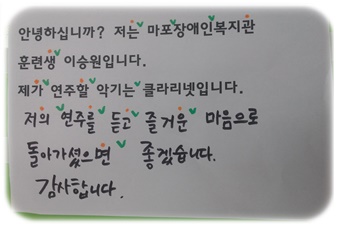 안녕하십니까? 저는 마포장애인복지관
훈련생 이승원입니다.
제가 연주할 악기는 클라리넷입니다.
저의 연주를 듣고 즐거운 마음으로
돌아가셨으면 좋겠습니다.
감사합니다.